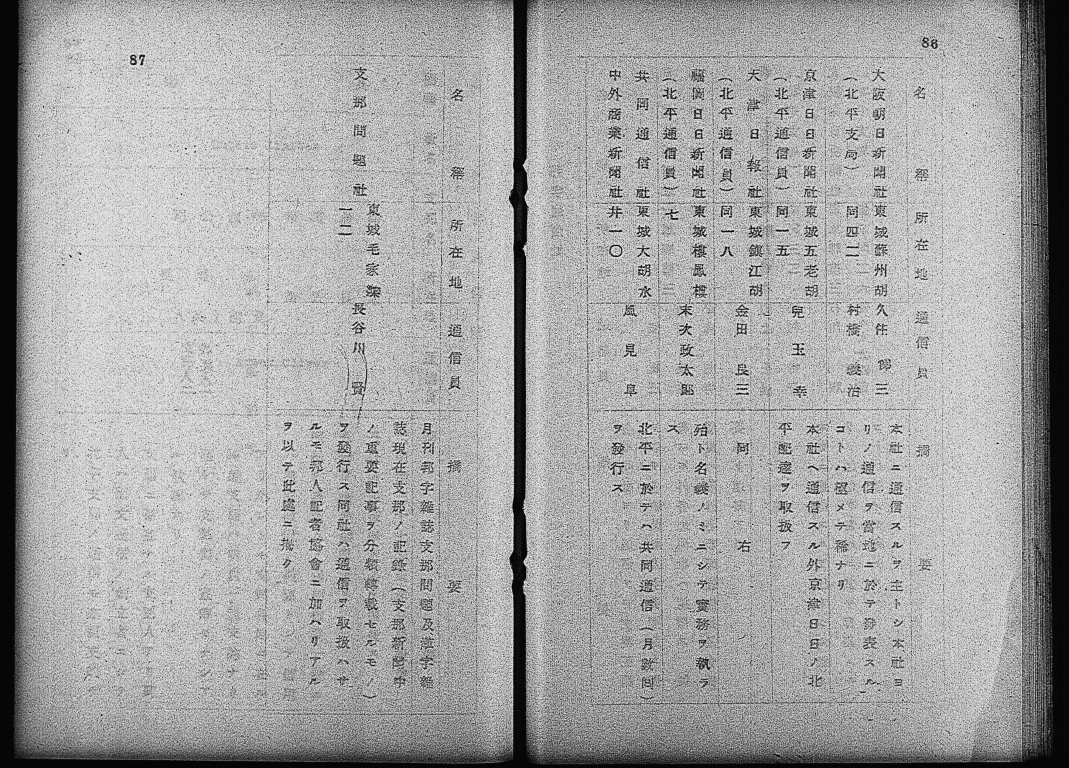 86
名稱 所在地 通信員 摘要
大阪朝日新聞社 東城蘇州胡 久住 三
(北平支局) 同四二 村橋 義治
本社ニ通信スルヲ主トシ本社ヨ
リノ通信ヲ當地ニ於テ發表スル
コトハ極メテ稀ナリ
京津日日新聞社 東城五老胡 兒玉 幸
(北平通信員) 同一五
本社ヘ通信スル外京津日日ノ北
平配達ヲ取扱フ
天津日報社 東城鎮江胡 金田 良三 同右
(北平通信員) 同一八
福岡日日新聞社 東城樓鳳樓 末次政太郎 殆ト名義ノミニシテ實務ヲ執ラ
(北平通信員) 七 ス
共同通信社 東城大胡水 風見 阜 北平ニ於テハ共同通信(月數回)
中外商業新聞社 井一〇 ヲ發行ス
87
名稱 所在地 通信員 摘要
支那問題社 東城毛家灣 長谷川 賢
一二
月刊邦字雜誌支那問題及漢字雜
誌現在支那ノ記錄(支那新聞中
ノ重要記事ヲ分類轉載セルモノ)
ヲ發行ス同社ハ通信ヲ取扱ハサ
ルモ邦人記者協會ニ加ハリアル
ヲ以テ此處ニ揭ク